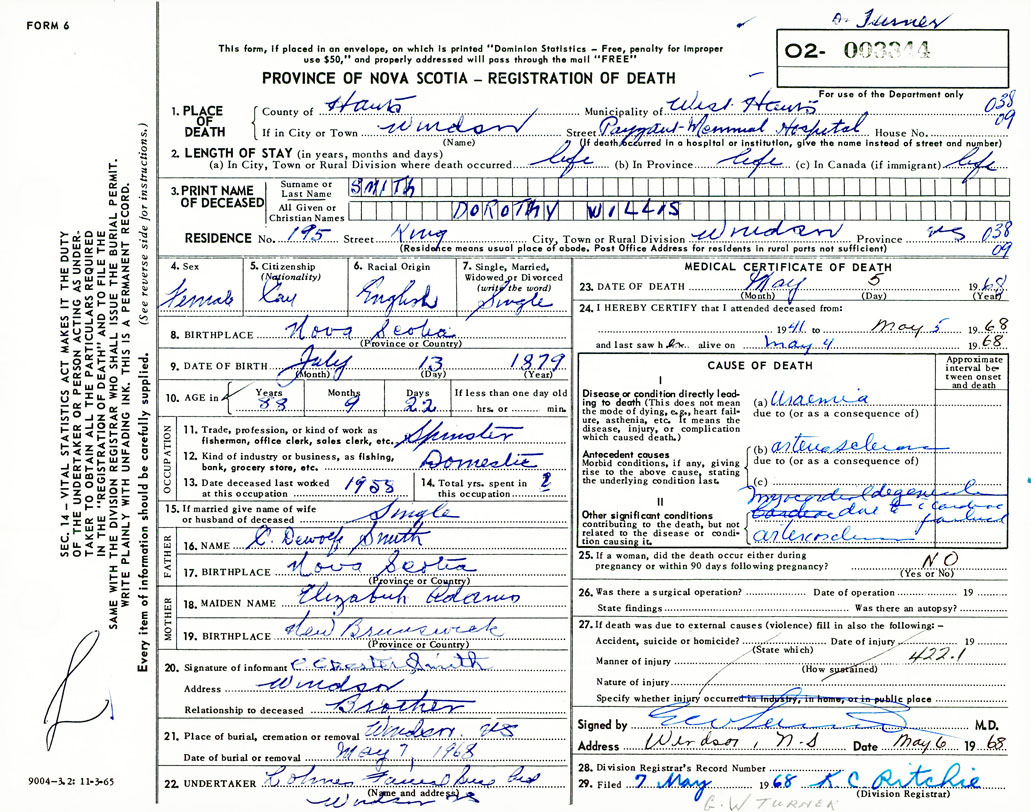 FORM 6
A. Turner
This form, if placed in an envelope, on which is printed "Dominion Statistics – Free, penalty for improper
use $50," and properly addressed will pass through the mail "FREE"
PROVINCE OF NOVA SCOTIA – REGISTRATION OF DEATH
02- 003344
For use of the Department only
038
09
1. PLACE OF DEATH
County of Hants Municipality of West Hants
If in City or Town Windsor Street Payzant Memorial Hospital House No.
(Name) (If death occurred in a hospital or institution, give the name instead of street and number)
2. LENGTH OF STAY (in years, months and days)
(a) In City, Town or Rural Division where death occurred life (b) In Province life (c) In Canada (if immigrant) life
3. PRINT NAME OF DECEASED
Surname or Last Name SMITH
All Given or Christian Names DOROTHY WILLIS
RESIDENCE No. 195 Street King City, Town or Rural Division Windsor Province NS 038
09
(Residence means usual place of abode. Post Office Address for residents in rural parts not sufficient)
4. Sex Female
5. Citizenship (Nationality) Can
6. Racial Origin English
7. Single, Married, Widowed or Divorced (write the word) Single
8. BIRTHPLACE Nova Scotia
(Province or Country)
9. DATE OF BIRTH July 13 1879
(Month) (Day) (Year)
10. AGE in Years 88 Months 9 Days 22 If less than one day old
hrs. or min.
OCCUPATION
11. Trade, profession, or kind of work as
fisherman, office clerk, sales clerk, etc. Spinster
12. Kind of industry or business, as fishing,
bank, grocery store, etc. Domestic
13. Date deceased last worked
at this occupation 1958
14. Total yrs. spent in
this occupation
15. If married give name of wife
or husband of deceased Single
FATHER
16. NAME C. Dewolfe Smith
17. BIRTHPLACE Nova Scotia
(Province or Country)
MOTHER
18. MAIDEN NAME Elizabeth Adams
19. BIRTHPLACE New Brunswick
(Province or Country)
20. Signature of informant C Chester Smith
Address Windsor
Relationship to deceased Brother
21. Place of burial, cremation or removal Windsor NS
Date of burial or removal May 7, 1968
22. UNDERTAKER Funeral
(Name and address) Windsor NS
MEDICAL CERTIFICATE OF DEATH
23. DATE OF DEATH May 5 1968
(Month) (Day) (Year)
24. I HEREBY CERTIFY that I attended deceased from:
1941 to May 5 1968
and last saw her alive on May 4 1968
CAUSE OF DEATH
Approximate interval between onset and death
I
Disease or condition directly leading to death (This does not mean the mode of dying, e.g., heart failure, asthenia, etc. It means the disease, injury, or complication which caused death.)
(a) Uraemia
due to (or as a consequence of)
Antecedent causes
Morbid conditions, if any, giving rise to the above cause, stating the underlying condition last.
(b) arteriosclerosis
due to (or as a consequence of)
(c)
II
Other significant conditions contributing to the death, but not related to the disease or condition causing it.
myocardial degeneration
due to cardiac failure
arteriosclerosis
25. If a woman, did the death occur either during
pregnancy or within 90 days following pregnancy? NO
(Yes or No)
26. Was there a surgical operation? Date of operation 19
State findings Was there an autopsy?
27. If death was due to external causes (violence) fill in also the following: –
Accident, suicide or homicide? Date of injury 19
(State which)
Manner of injury 422.1
(How sustained)
Nature of injury
Specify whether injury occurred in industry, in home, or in public place
Signed by M.D.
Address Windsor, N-S Date May 6 1968
28. Division Registrar's Record Number
29. Filed 7 May 1968 K C Ritchie
(Division Registrar)
E. W TURNER
SEC. 14 – VITAL STATISTICS ACT MAKES IT THE DUTY
OF THE UNDERTAKER OR PERSON ACTING AS UNDER-
TAKER TO OBTAIN ALL THE PARTICULARS REQUIRED
IN THE "REGISTRATION OF DEATH" AND TO FILE THE
SAME WITH THE DIVISION REGISTRAR WHO SHALL ISSUE THE BURIAL PERMIT.
WRITE PLAINLY WITH UNFADING INK. THIS IS A PERMANENT RECORD.
Every item of information should be carefully supplied. (See reverse side for instructions.)
9004–3.2: 11-3-65